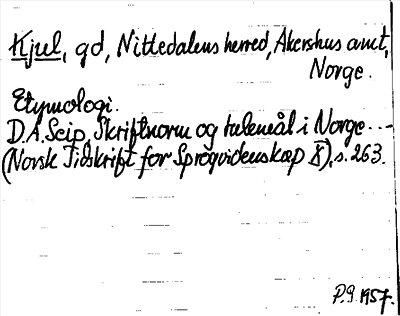 Kjul, gd, Nittedalens herred, Akershus amt,
Norge.
Etymologi.
D.A. Seip, Skriftnorm og talemål i Norge...-
(Norsk Tidskrift for Sprogvidenskap X), s. 263.
P.J. 1957.